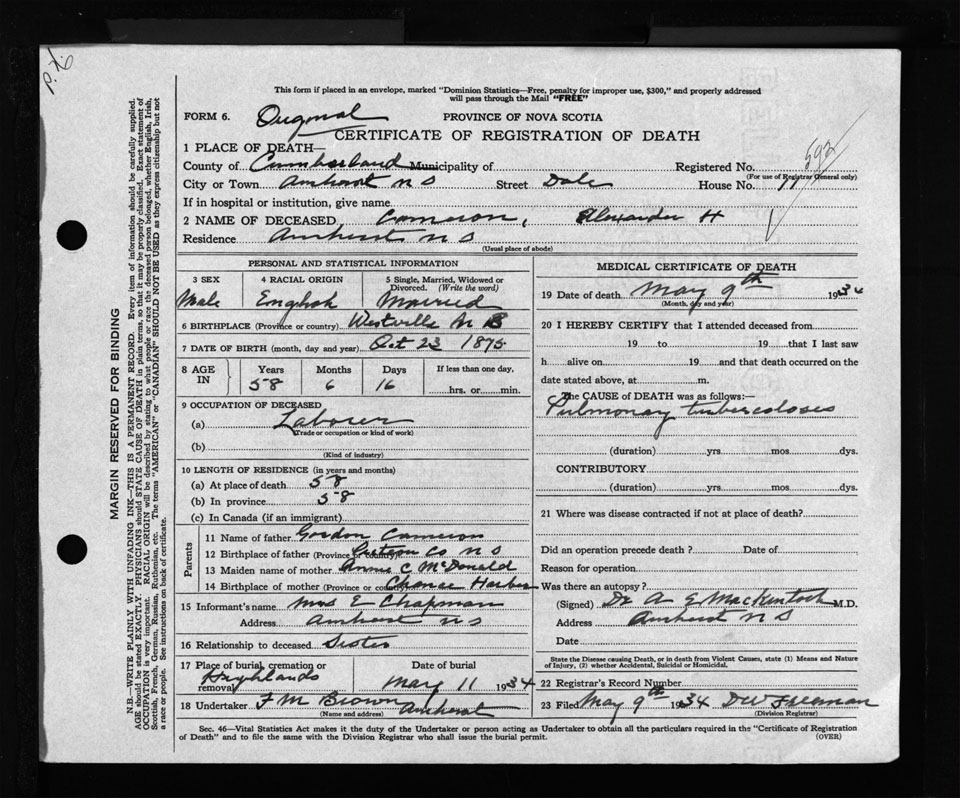 This form if placed in an envelope, marked "Dominion Statistics—Free, penalty for improper use, $300," and properly addressed
will pass through the Mail "FREE"
FORM 6. Original PROVINCE OF NOVA SCOTIA
CERTIFICATE OF REGISTRATION OF DEATH
1 PLACE OF DEATH—
County of Cumberland Municipality of Registered No. 592
(For use of Registrar General only)
City or Town Amherst N S Street Dale House No. 11
If in hospital or institution, give name
2 NAME OF DECEASED Cameron, Alexander H
Residence Amherst N S
(Usual place of abode)
PERSONAL AND STATISTICAL INFORMATION
3 SEX 4 RACIAL ORIGIN 5 Single, Married, Widowed or
Divorced. (Write the word)
Male English Married
6 BIRTHPLACE (Province or country) Westville N B
7 DATE OF BIRTH (month, day and year) Oct 23 1875
8 AGE IN Years Months Days If less than one day,
58 6 16 hrs. or min.
9 OCCUPATION OF DECEASED
(a) Laborer
(Trade or occupation or kind of work)
(b)
(Kind of industry)
10 LENGTH OF RESIDENCE (in years and months)
(a) At place of death 58
(b) In province 58
(c) In Canada (if an immigrant)
Parents
11 Name of father Gordon Cameron
12 Birthplace of father (Province or country) Co N S
13 Maiden name of mother Annie C McDonald
14 Birthplace of mother (Province or country) Chance Harbor
15 Informant's name Mrs E Chapman
Address Amherst N S
16 Relationship to deceased Sister
17 Place of burial, cremation or
removal Highlands
Date of burial
May 11 1934
18 Undertaker F M Brown Amherst
(Name and address)
MEDICAL CERTIFICATE OF DEATH
19 Date of death May 9th 1934
(Month, day and year)
20 I HEREBY CERTIFY that I attended deceased from
19 to 19 that I last saw
h alive on 19 and that death occurred on the
date stated above, at m.
The CAUSE of DEATH was as follows:—
Pulmonary tuberculoses
(duration) yrs. mos. dys.
CONTRIBUTORY
(duration) yrs. mos. dys.
21 Where was disease contracted if not at place of death?
Did an operation precede death ? Date of
Reason for operation
Was there an autopsy ?
(Signed) Dr A E MacKintosh M.D.
Address Amherst N S
Date
State the Disease causing Death, or in death from Violent Causes, state (1) Means and Nature
of Injury, (2) whether Accidental, Suicidal or Homicidal.
22 Registrar's Record Number
23 Filed May 9th 1934 D W Freeman
(Division Registrar)
Sec. 46—Vital Statistics Act makes it the duty of the Undertaker or person acting as Undertaker to obtain all the particulars required in the "Certificate of Registration
of Death" and to file the same with the Division Registrar who shall issue the burial permit.
(OVER)
MARGIN RESERVED FOR BINDING
N.B.—WRITE PLAINLY WITH UNFADING INK—THIS IS A PERMANENT RECORD. Every item of information should be carefully supplied.
AGE should be stated EXACTLY. PHYSICIANS should STATE CAUSE OF DEATH in plain terms, so that it may be properly classified. Exact statement of
OCCUPATION is very important. RACIAL ORIGIN will be described by stating to what people or race the deceased person belonged, whether English, Irish,
Scottish, French, German, Russian, Ruthenian, etc. The terms "AMERICAN" or "CANADIAN" SHOULD NOT BE USED as they express citizenship but not
a race or people. See instructions on back of certificate.